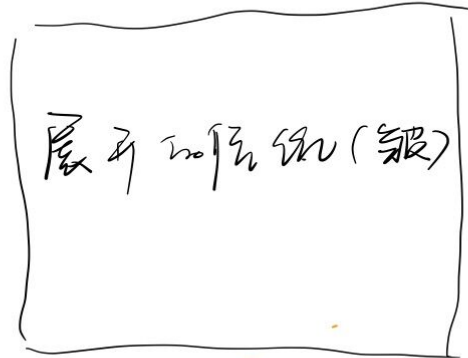 展开的信纸(皱)